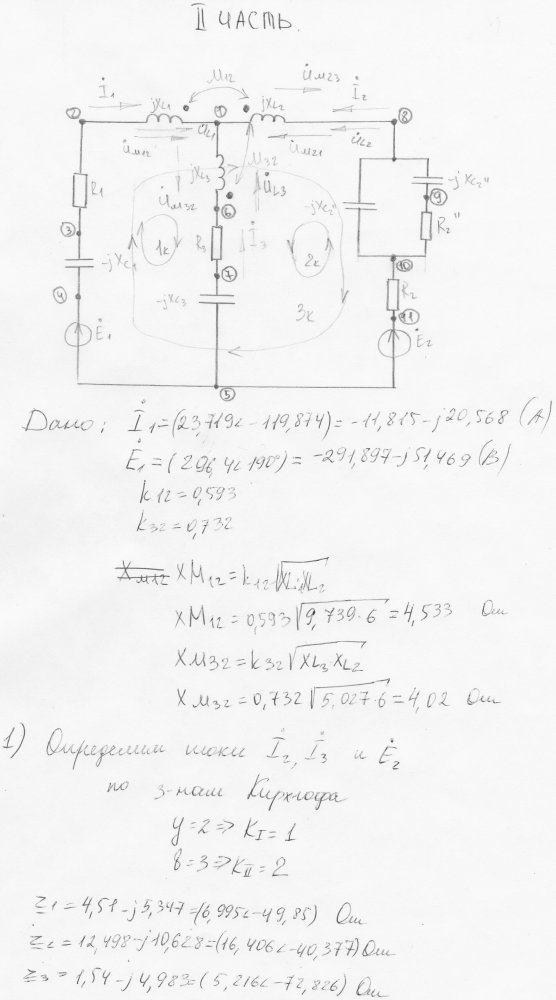 II ЧАСТЬ.
İ1 M12 U̇M23 İ2
2 jXL1 1 jXL2 8
U̇M12 U̇L1 U̇M21 U̇L2
jXL3 M32
R1 U̇M32 U̇L3 -jXC2' -jXC2''
6 9
3 1к R3 İ3 2к R2''
-jXC1 7 10
4 -jXC3 R2
3к 11
Ė1 Ė2
5
Дано: İ1=(23,719∠-119,874)= -11,815-j20,568 (А)
Ė1=(296,4∠190°)= -291,897-j51,469 (В)
k12=0,593
k32=0,732
XM12=k12√XL1·XL2
XM12=0,593√9,739·6=4,533 Ом
XM32=k32√XL3·XL2
XM32=0,732√5,027·6=4,02 Ом
1) Определим токи İ2, İ3 и Ė2
по з-нам Кирхгофа
У=2=>KI=1
В=3=>KII=2
Z1=4,51-j5,347=(6,995∠-49,85) Ом
Z2=12,498-j10,628=(16,406∠-40,377) Ом
Z3=1,54-j4,983=(5,216∠-72,826) Ом